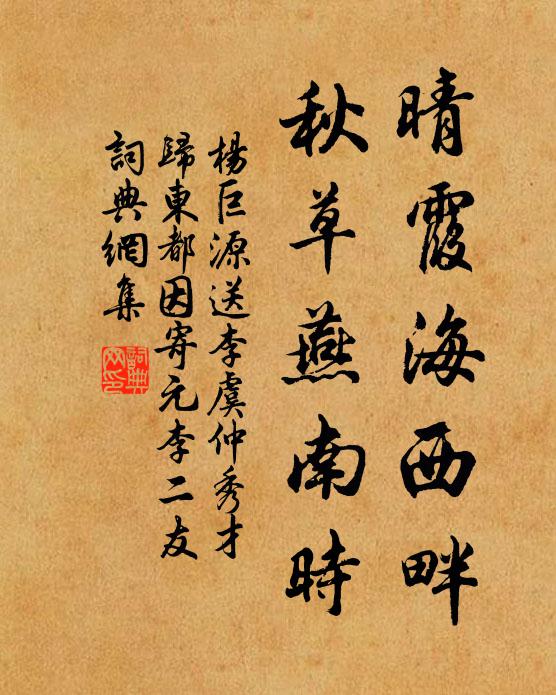 晴霞海西畔
秋草燕南時
楊巨源送李虞仲秀才
歸東都因寄元李二友
詞典網集
詞典
网印